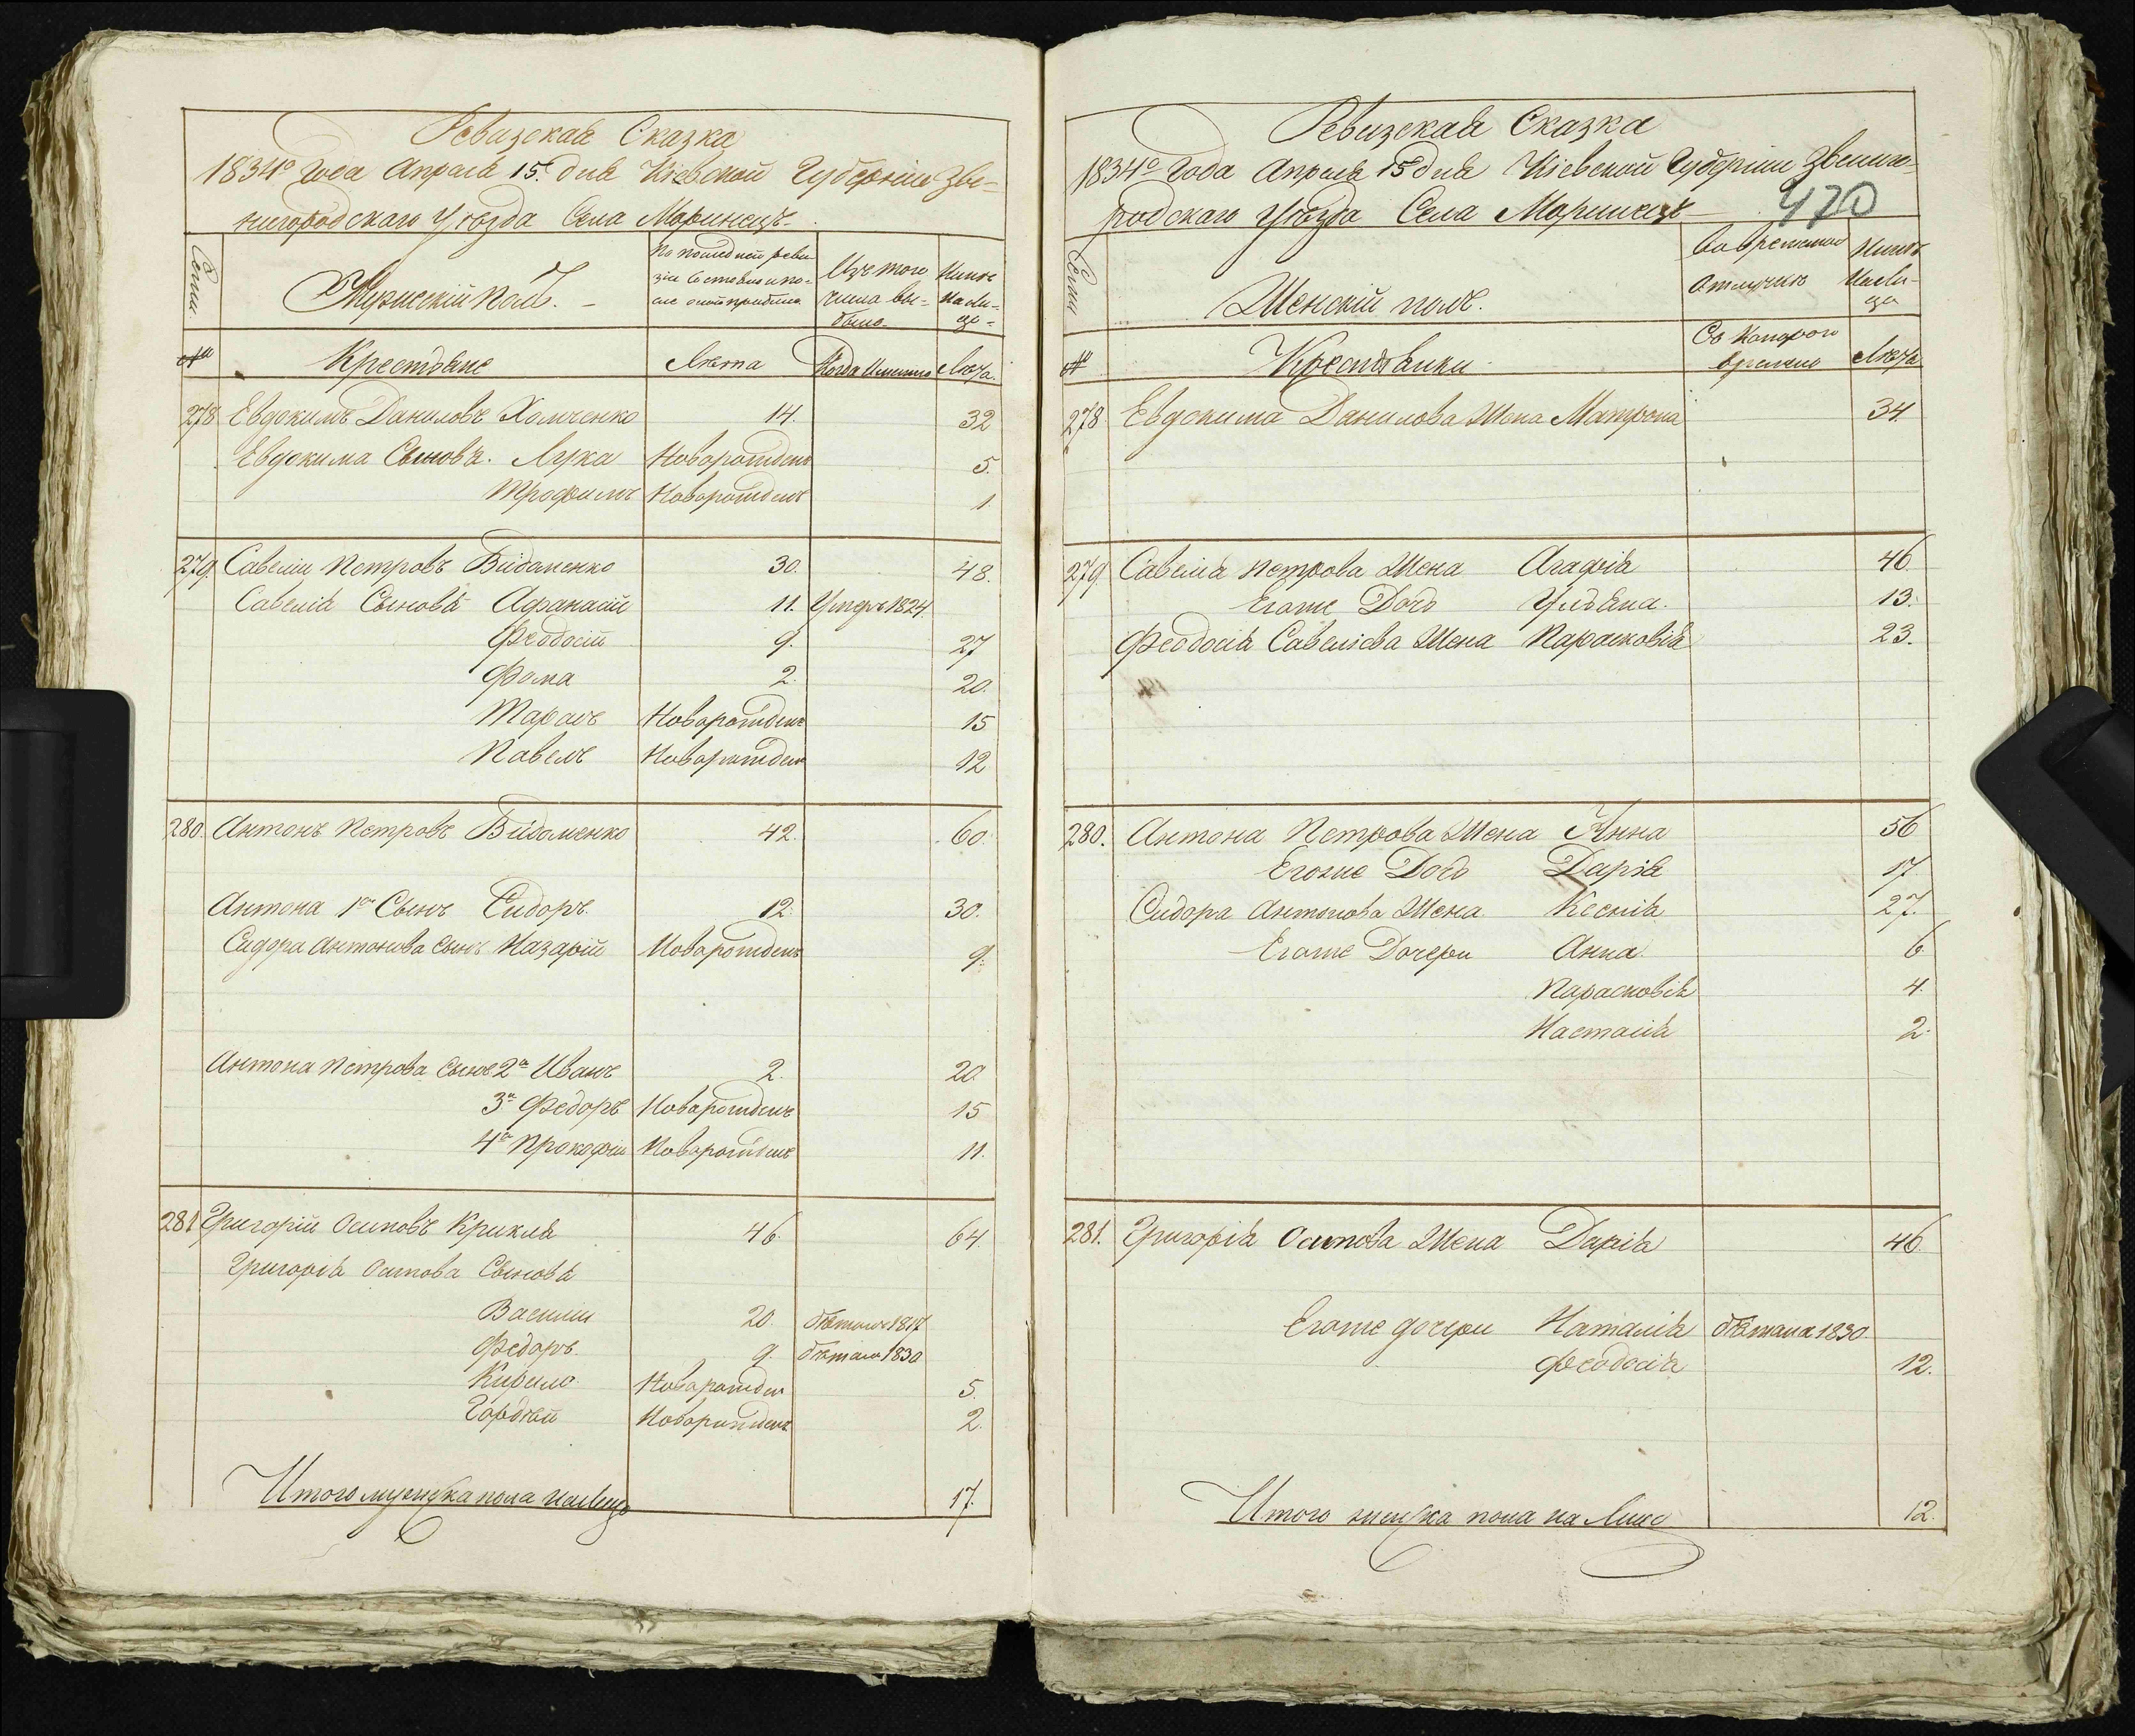 Ревизская Сказка
1834го года Апреля 15. дня Кіевской Губерніи Зве-
нигородскаго Уѣзда Села Моринецъ.
Семьи
Мужескій полъ.
По последней реви
зіи состояло и по-
сле оной прибыло
Изъ того
числа вы-
было
Нынѣ
на ли-
цо
№
Крестьяне
Лѣта
Когда именно
Лѣта.
278 Евдокимъ Даниловъ Хомченко 14. 32
Евдокима Сыновья. Лука Новорожденъ 5.
Трофимъ Новорожденъ 1
279. Савелій Петровъ Бидоменко 30. 48.
Савелія Сыновья Афанасій 11. Умеръ 1824
Феодосій 9. 27
Фома 2. 20.
Тарасъ Новорожденъ 15
Павелъ Новорожденъ 12
280. Антонъ Петровъ Бидоменко 42. 60.
Антона 1й Сынъ Сидоръ. 12. 30.
Сидора Антонова Сынъ Назарій Новорожденъ 9.
Антона Петрова Сынъ 2й Иванъ 2. 20
3й Федоръ Новорожденъ 15
4й Прокофій Новорожденъ 11.
281 Григорій Осиповъ Крикля 46. 64.
Григорія Осипова Сыновья
Василій 20. бѣжалъ 1817
Федоръ. 9. бѣжалъ 1830
Кирило. Новорожден 5.
Гордѣй Новорожденъ 2.
Итого мужеска пола налицо 17.
Ревизская Сказка
1834го года Апреля 15 дня Кіевской Губерніи Звениго-
родскаго Уѣзда Села Моринецъ
470
Семьи
Женскій полъ.
Во временной
отлучкѣ
Нынѣ
на ли-
цо
№
Крестьянки
Съ котораго
времени
Лѣта
278 Евдокима Данилова Жена Матрона 34.
279 Савелія Петрова Жена Агафія 46
Егоже Дочь Ульяна. 13.
Феодосія Савеліева Жена Парасковія 23.
280. Антона Петрова Жена Анна 56
Егоже Дочь Дарія 17
Сидора Антонова Жена Ксенія 27.
Егоже Дочери Анна. 6
Парасковія 4.
Настасія 2.
281. Григорія Осипова Жена Дарія 46.
Егоже дочери Наталія бѣжала 1830.
Феодосія 12.
Итого женска пола на лицо 12.